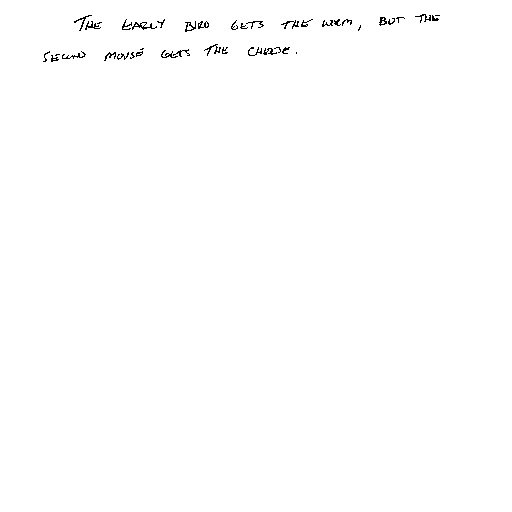 THE EARLY BIRD GETS THE WORM, BUT THE
SECOND MOUSE GETS THE CHEESE.